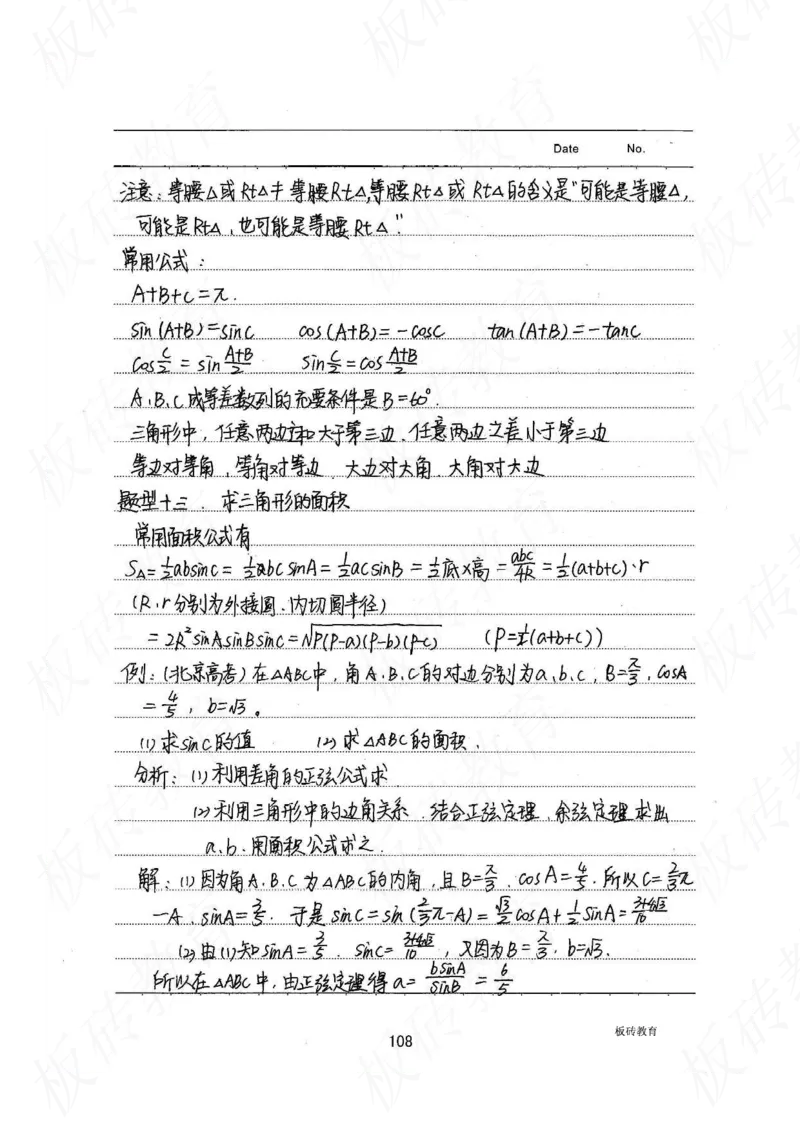 Date No.
注意：等腰△或Rt△≠等腰Rt△,等腰Rt△或 Rt△的含义是"可能是等腰△,
可能是Rt△、也可能是等腰Rt△."
常用公式：
A+B+C=π.
sin(A+B)=sinC cos(A+B)=-cosC tan(A+B)=-tanC
cos C/2 = sin (A+B)/2 sin C/2 = cos (A+B)/2
A、B、C成等差数列的充要条件是B=60°.
三角形中，任意两边之和大于第三边、任意两边之差小于第三边
等边对等角、等角对等边、大边对大角、大角对大边
题型十三、求三角形的面积
常用面积公式有
S△=½absinC=½bcsinA=½acsinB=½底×高=abc/4R=½(a+b+c)·r
(R、r分别为外接圆、内切圆半径)
=2R²sinAsinBsinC=√P(P-a)(P-b)(P-c) (P=½(a+b+c))
例：(北京高考)在△ABC中，角A、B、C的对边分别为a、b、c，B=π/3，cosA
=4/5，b=√3。
(1)求sinC的值 (2)求△ABC的面积.
分析：(1)利用差角的正弦公式求
(2)利用三角形中的边角关系、结合正弦定理、余弦定理求出
a、b.用面积公式求之.
解：(1)因为角A、B、C为△ABC的内角，且B=π/3，cosA=4/5.所以C=2/3π
-A，sinA=3/5. 于是sinC=sin(2/3π-A)=√3/2cosA+½sinA=(3+4√3)/10
(2)由(1)知sinA=3/5，sinC=(3+4√3)/10，又因为B=π/3，b=√3.
所以在△ABC中，由正弦定理得a=bsinA/sinB=6/5
108
板砖教育
板砖教育